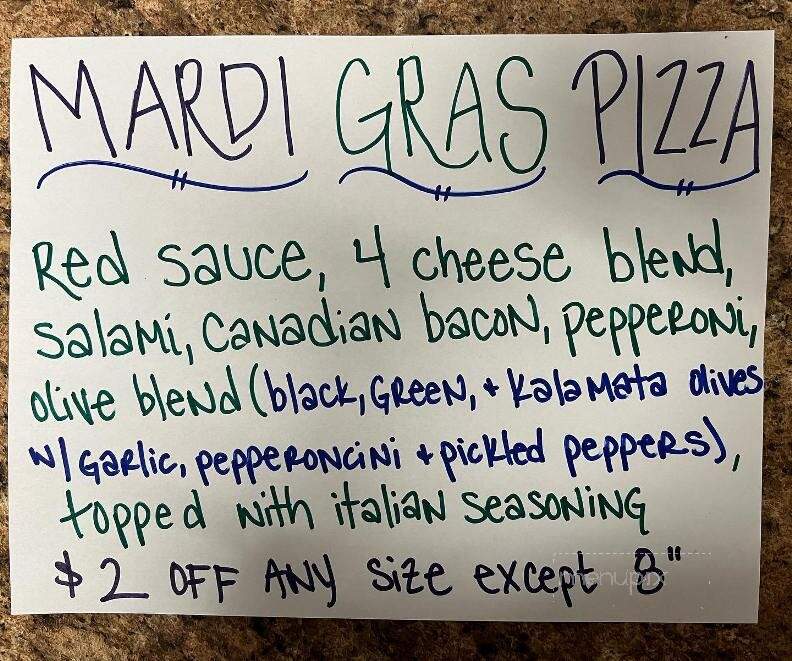 MARDI GRAS PIZZA
Red sauce, 4 cheese blend,
salami, Canadian bacon, pepperoni,
olive blend (black, Green, + Kalamata olives
w/ Garlic, pepperoncini + pickled peppers),
topped with italian seasoning
$2 OFF ANY size except 8"
menupix